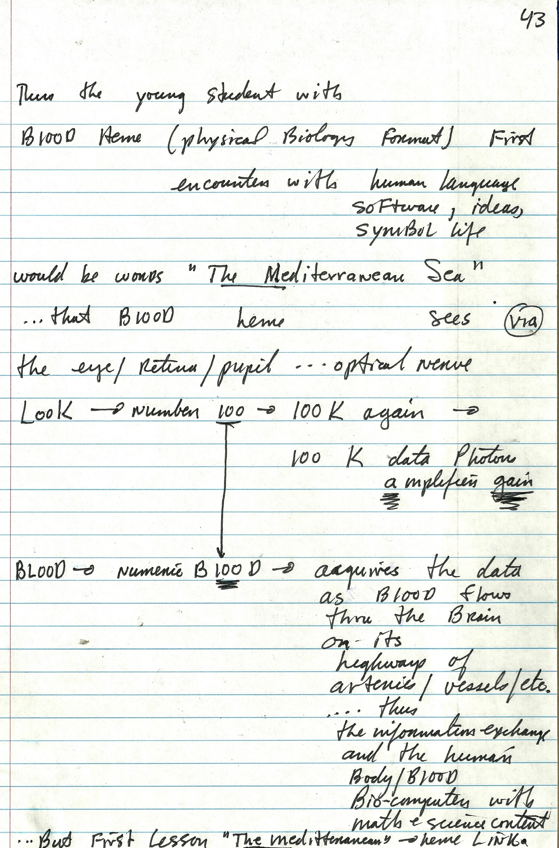 43
Thus the young student with
BlOOD Heme (physical Biology Format) First
encounters with human language
SOFTware, ideas,
SYMBOL life
would be words "The Mediterranean Sea"
...that BlOOD heme sees via
the eye/Retina/pupil ... optical nerve
LooK → Number 100 → 100 K again →
100 K data Photon
amplifier gain
BLOOD → numeric B 100 D → acquires the data
as BlOOD flows
thru the Brain
on its
highways of
arteries/vessels/etc.
.... thus
the information exchange
and the human
Body/BlOOD
Bio-computer with
math & science content
...But First Lesson "The mediterranean" → heme LiNK.